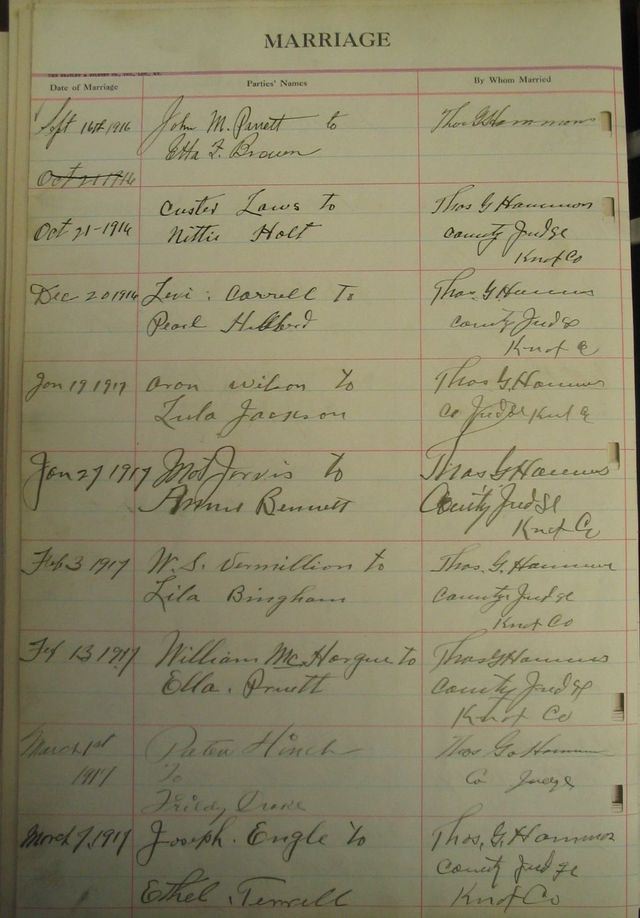 MARRIAGE
Date of Marriage Parties' Names By Whom Married
Sept 16th 1916 John M. Parrett to Thos G Hammons
Etta F. Brown
Oct 21 1916
Custer Laws to Thos G Hammons
Oct 21-1916 Nittie Holt County Judge
Knox Co
Dec 20 1916 Levi Carrell To Thos. G Hammons
Pearl County Judge
Knox Co
Jan 19 1917 Aron Wilson to Thos G Hammons
Lula Jackson Co Judge Knox Co
Jan 27 1917 Jarvis to Thos G Hammons
Bennett County Judge
Knox Co
Feb 3 1917 W. S. Vermillion to Thos. G. Hammons
Lila Bingham County Judge
Knox Co
Feb 13 1917 William McHargue to Thos G Hammons
Ella Pruett County Judge
Knox Co
March 1st Hinch Thos G Hammons
1917 To Co Judge
March 7, 1917 Joseph. Engle to Thos. G. Hammons
County Judge
Ethel. Terrell Knox Co